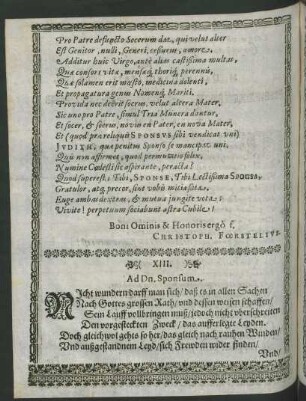 Pro Patre defuncto Socerum dat, qui velut alter
Est Genitor, nulli, Generi, cessurus, amore.
Additur huic Virgo, ante alias castissima multas,
Quæ consors vitæ, mensæq́, thoriq́, perennis,
Quæ solamen erit mœsto, medicina dolenti,
Et propagatura genus Nomenq́, Mariti.
Provida nec deerit socrus, velut altera Mater,
Sic uno pro Patre, simul Tres Munera dantur,
Et socer, & socrus, novus en Pater, en nova Mater,
Et (quod præ reliquis SPONSUS sibi vendicat uni)
JUDITH, quæ penitus Sponso se mancipat uni.
Numine Cœlesti sic aspirante, peracta!
Quod superest: Tibi, SPONSE, Tibi Lectissima SPONSA,
Gratulor, atq́, precor, sint vobis mitia fata.
Euge ambæ dextræ, & mutua jungite vota:
Vivite! perpetuum socialunt astra Cubile!
Boni Ominis & Honoris ergò f.
CHRISTOPH. FŒRSTELIUS
XIII.
Ad Dn. Sponsum.
Nicht wundern darff man sich/ daß es in allen Sachen
Nach Gottes grossen Rath/ und dessen weisen schaffen/
Sein Lauff vollbringen muß/ jedoch nicht überschreiten
Den vorgesteckten Zweck/ das aufferlegte Leyden.
Doch gleichwol gehts so her/ das gleich nach rauhen Winden/
Und außgestandnem Leyd/ sich Freuden wider finden/
Und/